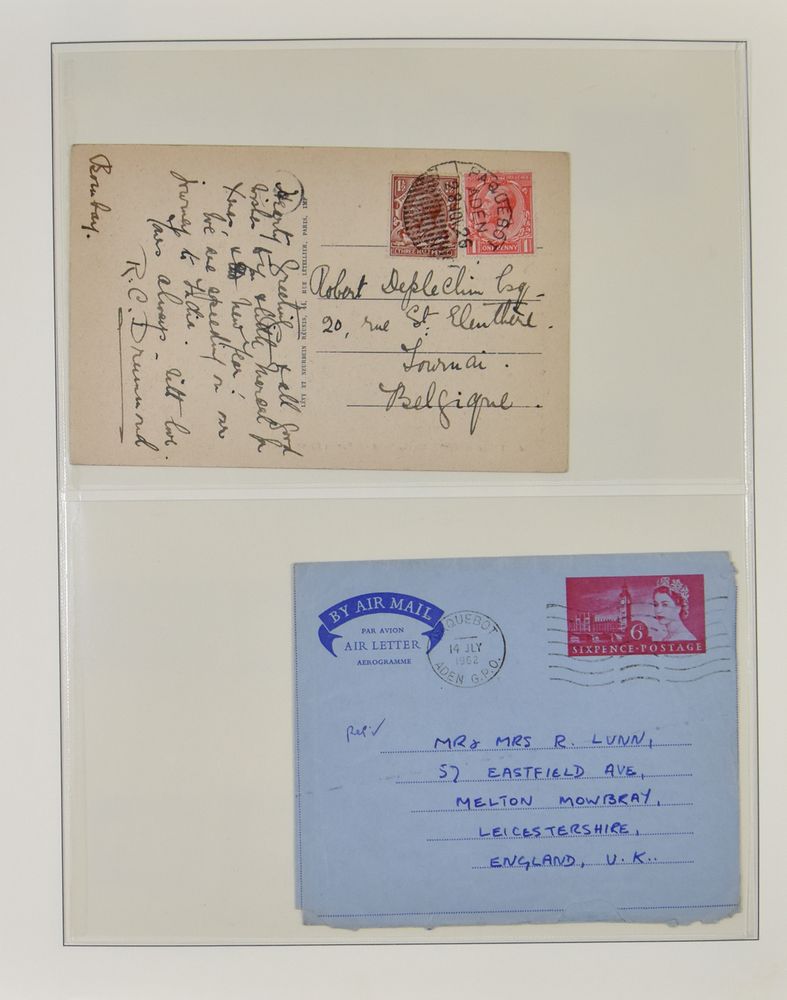 Bombay.
Hearty Greetings & all good
wishes for a
Xmas, & New Year!
We are speeding on our
journey to India.
Yours always - with love.
R. C. Drummond
LÉVY ET NEURDEIN RÉUNIS, RUE LETELLIER, PARIS,
PAQUEBOT
ADEN
26
ONE PENNY
Robert Deplechin Esq.
20, rue St. Eleuthère.
Tournai.
Belgique.
BY AIR MAIL
PAR AVION
AIR LETTER
AEROGRAMME
QUEBOT
14 JLY
1962
ADEN G.P.O.
6D
SIXPENCE·POSTAGE
MR & MRS R. LUNN,
57 EASTFIELD AVE,
MELTON MOWBRAY,
LEICESTERSHIRE,
ENGLAND, U.K..